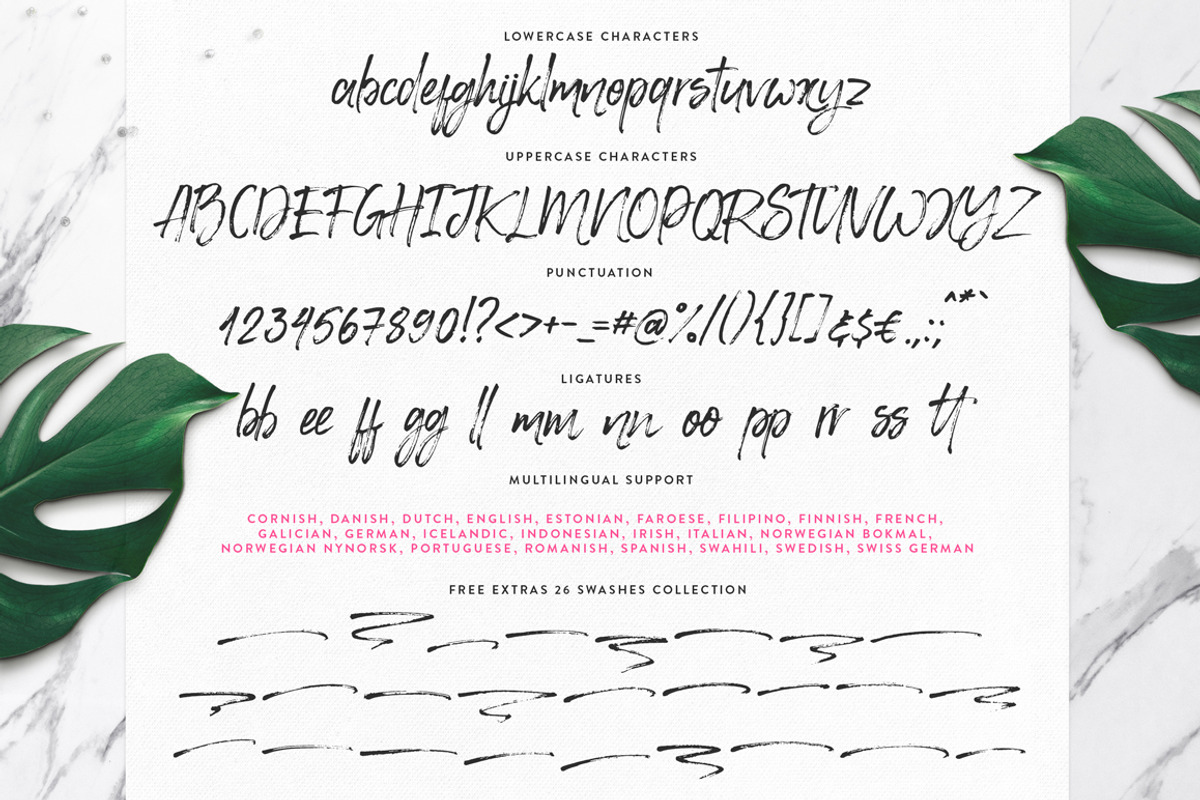 LOWERCASE CHARACTERS
abcdefghijklmnopqrstuvwxyz
UPPERCASE CHARACTERS
ABCDEFGHIJKLMNOPQRSTUVWXYZ
PUNCTUATION
1234567890!?<>+-_=#@%/(){}[]&$€.,:;^*`
LIGATURES
bb ee ff gg ll mm nn oo pp rr ss tt
MULTILINGUAL SUPPORT
CORNISH, DANISH, DUTCH, ENGLISH, ESTONIAN, FAROESE, FILIPINO, FINNISH, FRENCH,
GALICIAN, GERMAN, ICELANDIC, INDONESIAN, IRISH, ITALIAN, NORWEGIAN BOKMAL,
NORWEGIAN NYNORSK, PORTUGUESE, ROMANISH, SPANISH, SWAHILI, SWEDISH, SWISS GERMAN
FREE EXTRAS 26 SWASHES COLLECTION